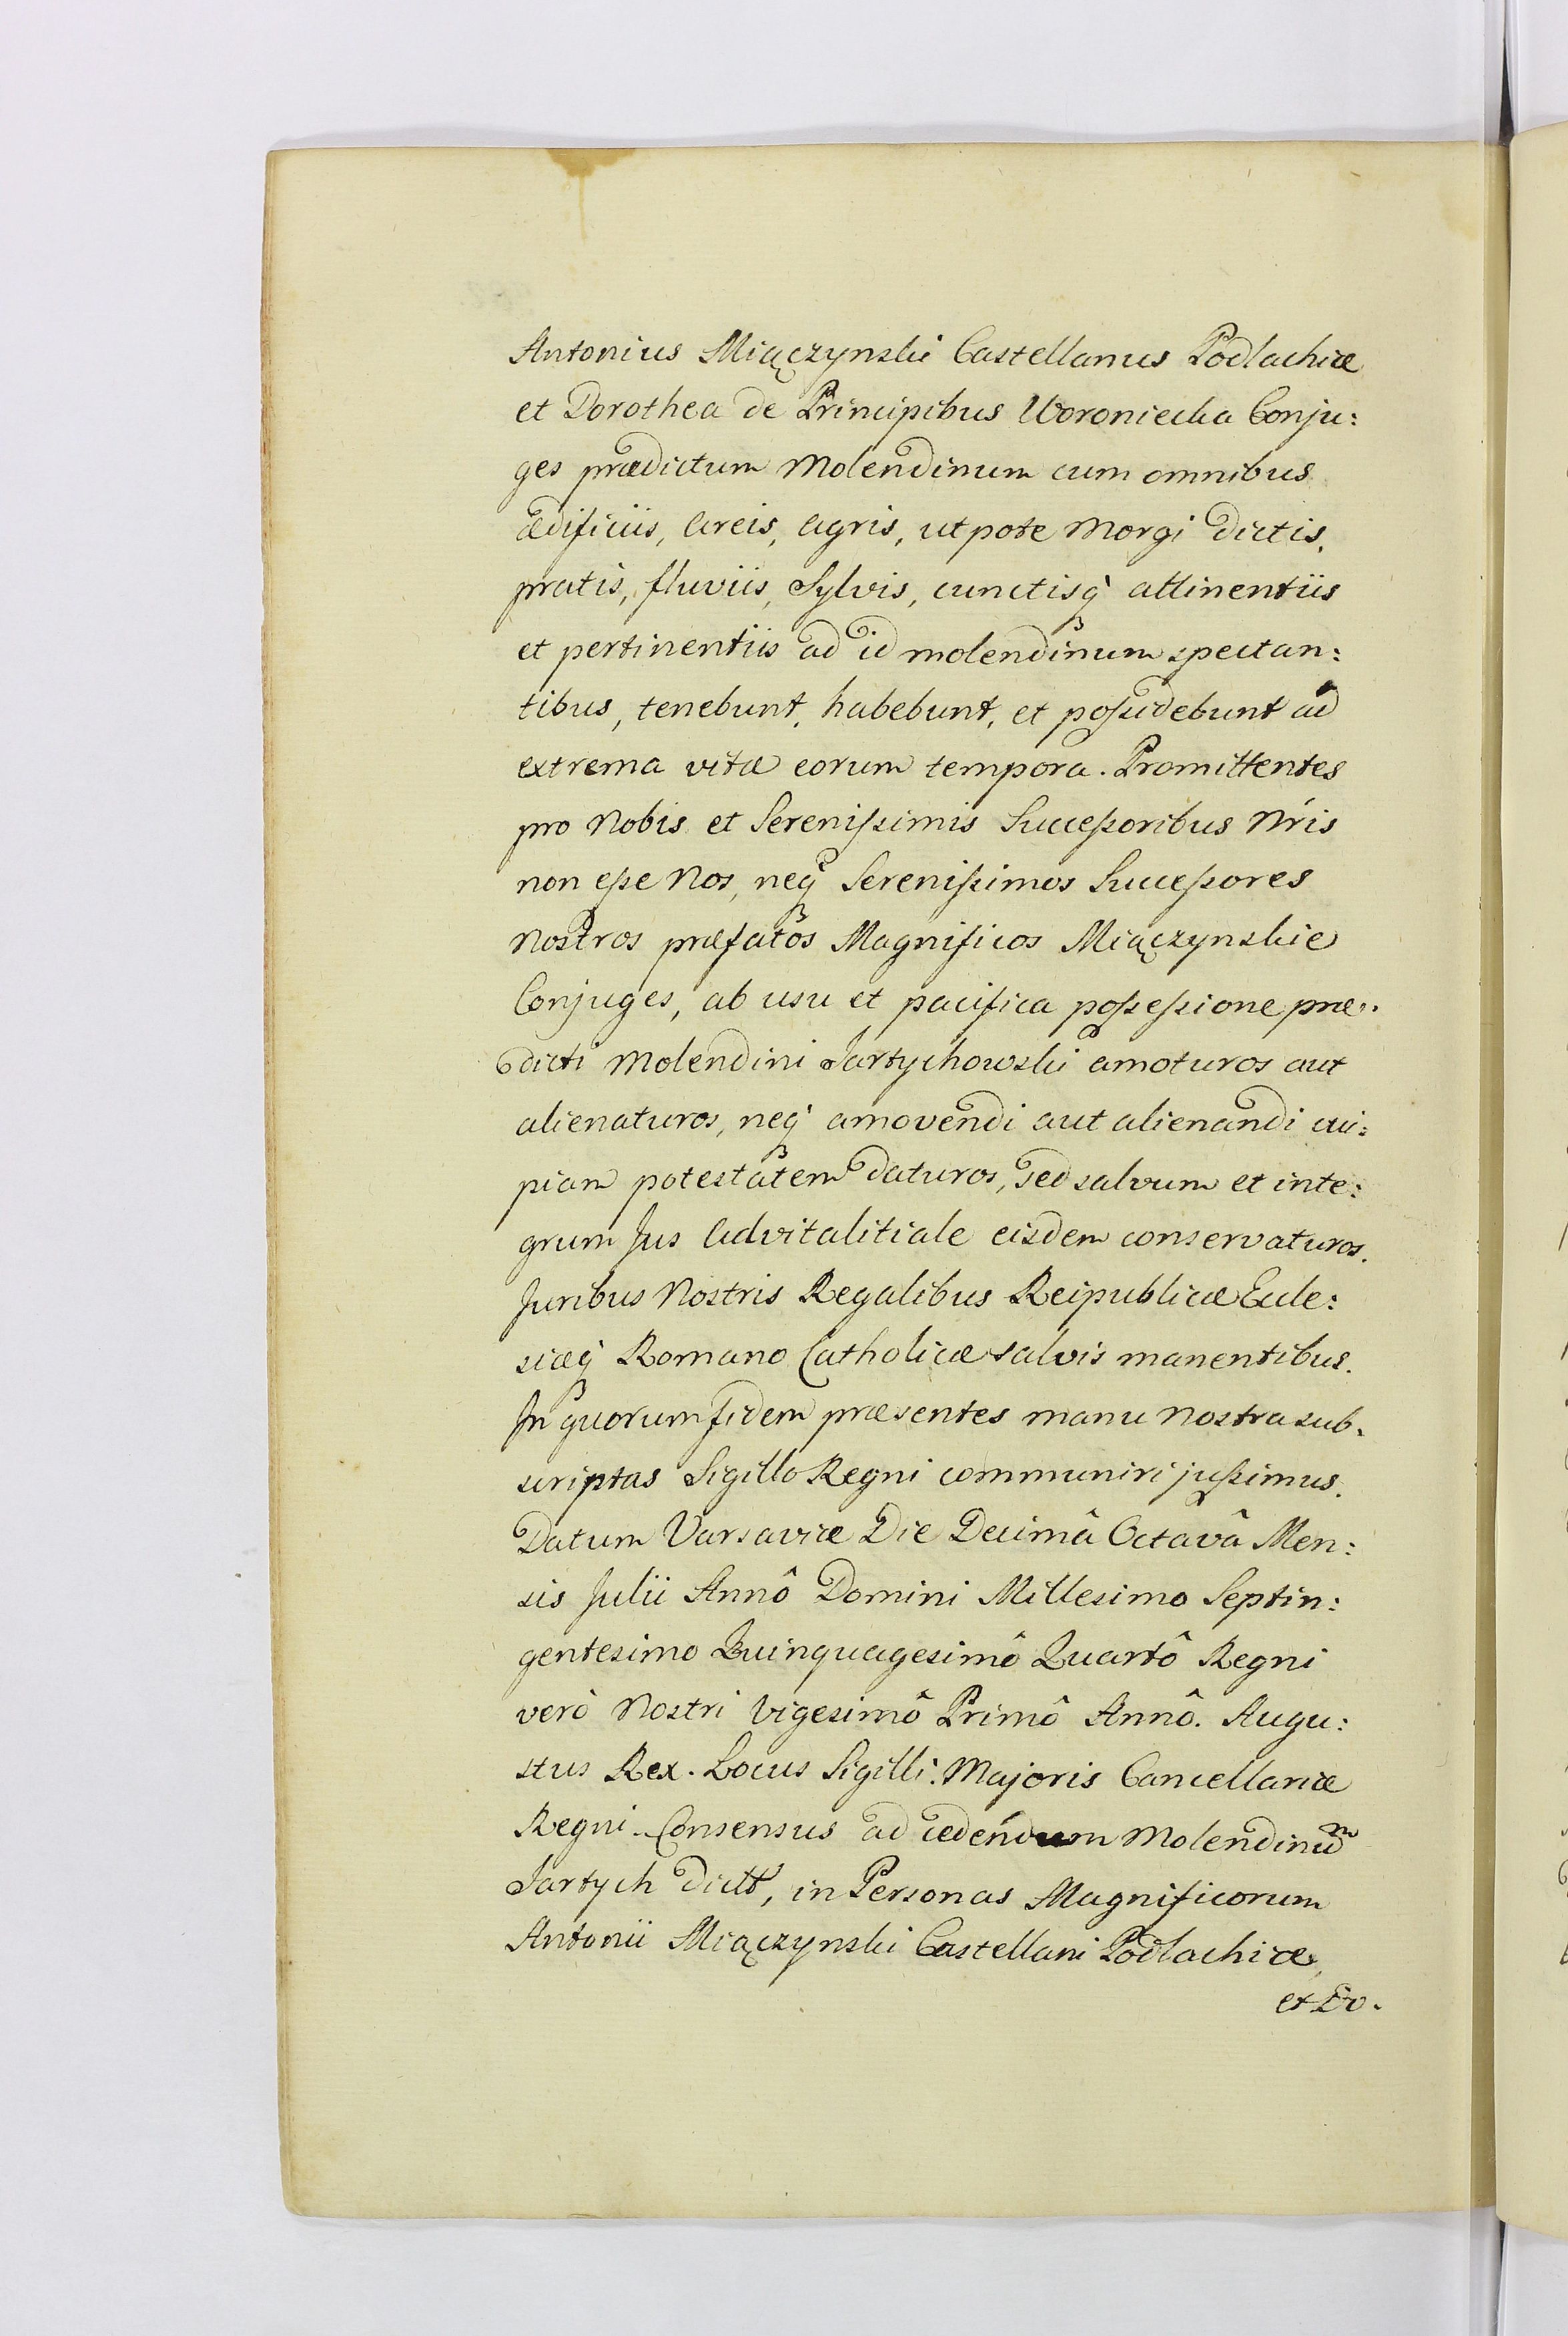 Antonius Miączynski Castellanus Podlachiæ
et Dorothea de Principibus Woroniecka Conju:
ges prædictum Molendinum cum omnibus
ædificiis, Areis, Agris, utpote Morgi dictis,
pratis, fluviis, Sylvis, cunctisq̀ attinentiis
et pertinentiis ad id molendinum spectan:
tibus, tenebunt, habebunt, et possidebunt ad
extrema vitæ eorum tempora. Promittentes
pro Nobis et Serenissimis Successoribus Nris
non esse Nos, neq̀ Serenissimos Successores
Nostros præfatos Magnificos Miączynskie
Conjuges, ab usu et pacifica possessione præ:
dicti Molendini Jartychowski amoturos aut
alienaturos, neq̀ amovendi aut alienandi cui:
piam potestatem daturos, sed salvum et inte:
grum Jus Advitalitiale eisdem conservaturos.
Juribus Nostris Regalibus Reipublicæ Eccle:
siæq̀ Romano Catholicæ salvis manentibus.
In quorum fidem præsentes manu Nostra sub:
scriptas Sigillo Regni communiri jussimus.
Datum Varsaviæ Die Decimâ Octavâ Men:
sis Julii Annô Domini Millesimo Septin:
gentesimo Quinquagesimô Quartô Regni
verò Nostri Vigesimô Primô Annô. Augu:
stus Rex. Locus Sigilli. Majoris Cancellariæ
Regni. Consensus ad cedendum Molendinum
Jartych dictt, in Personas Magnificorum
Antonii Miączynski Castellani Podlachiæ,
et Do.